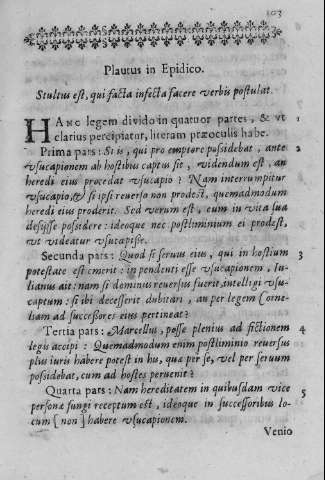 103
Plautus in Epidico.
Stultus est, qui facta infecta facere verbis postulat.
HANC legem divido in quatuor partes, & vt 1
clarius percipiatur, literam præoculis habe.
Prima pars: Si is, qui pro emptore possidebat, ante 2
vsucapionem ab hostibus captus sit, videndum est, an
heredi eius procedat vsucapio? Nam interrumpitur
vsucapio, & si ipsi reverso non prodest, quemadmodum
heredi eius proderit. Sed verum est, eum in vita sua
desijsse possidere: ideoque nec postliminium ei prodest,
vt videatur vsucapisse.
Secunda pars: Quod si seruus eius, qui in hostium 3
potestate est emerit: in pendenti esse vsucapionem, Iu-
lianus ait: nam si dominus reuersus fuerit, intelligi vsu-
captum: si ibi decesserit dubitari, an per legem Corne-
liam ad successores eius pertineat?
Tertia pars: Marcellus, posse plenius ad fictionem 4
legis accipi: Quemadmodum enim postliminio reuersus
plus iuris habere potest in his, quæ per se, vel per seruum
possidebat, cum ad hostes peruenit?
Quarta pars: Nam hereditatem in quibusdam vice 5
personæ fungi receptum est, ideoque in successoribus lo-
cum [non] habere vsucapionem.
Venio